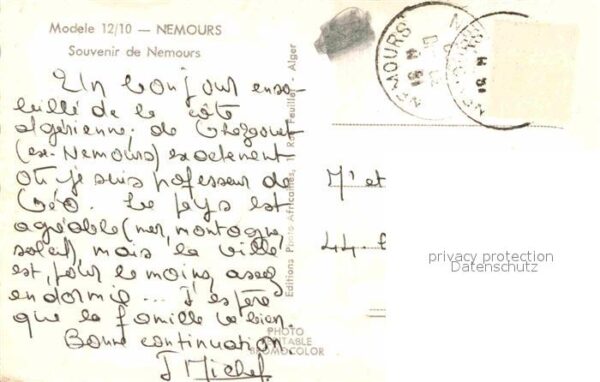 Modele 12/10 — NEMOURS
Souvenir de Nemours
Un bonjour enso-
leillé de la côte
algérienne, de Ghazaouet
(ex-Nemours) exactement
où je suis professeur de
Géo. Le pays est
agréable (mer, montagne,
soleil), mais la ville
est, pour le moins, assez
endormie... J'espère
que la famille va bien.
Bonne continuation.
J Michel
Editions Photo Africaines, 1 Rue Feuillet - Alger
PHOTO
VERITABLE
BROMOCOLOR
NEMOURS
M' et
44
privacy protection
Datenschutz